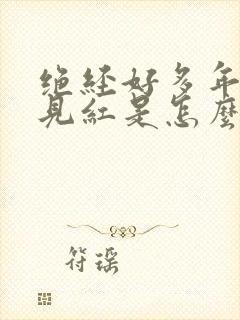 绝经好多年
见红是怎麼
符瑶